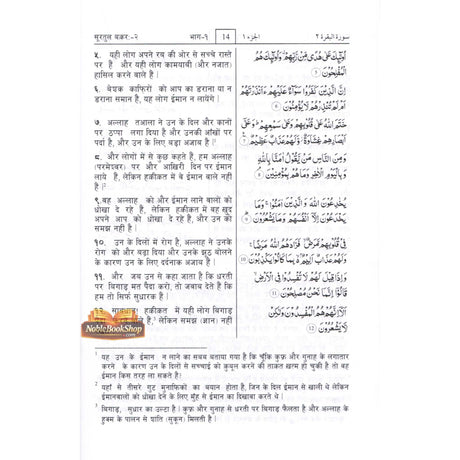 सूरतुल बकर:-२ भाग-१ 14 الجزء ١ سورة البقرة ٢
५. यही लोग अपने रब की ओर से सच्चे रास्ते
पर हैं और यही लोग कामयाबी (और नजात)
हासिल करने वाले हैं |
६. बेशक काफिरों को आप का डराना या न
डराना समान है, यह लोग ईमान न लायेंगे |
७. अल्लाह तआला ने उन के दिल और कानों
पर ठप्पा लगा दिया है और उनकी आँखों पर
पर्दा है, और उन के लिए बड़ा अजाब है |¹
८. और लोगों में से कुछ कहते हैं, हम अल्लाह
(परमेश्वर) पर और आखिरी दिन पर ईमान
लाये हैं, लेकिन हकीकत में वे ईमान वाले नहीं
हैं |²
९. वह अल्लाह को और ईमान लाने वालों को
धोखा दे रहे हैं, लेकिन हकीकत में वह खुद
अपने आप को धोखा दे रहे हैं, और उन को
समझ नहीं है |
१०. उन के दिलों में रोग है, अल्लाह ने उनके
रोग को और बढ़ा दिया और उनके झूठ बोलने
के कारण उन के लिए दर्दनाक अजाब है |
११. और जब उन से कहा जाता है कि धरती
पर बिगाड़ मत पैदा करो, तो जवाब देते हैं कि
हम तो सिर्फ सुधारक हैं |
हकीकत में यही लोग बिगाड़
हैं,³ लेकिन समझ (ज्ञान) नहीं
NobleBookShop
.com
أُولَٰئِكَ عَلَىٰ هُدًى مِّن رَّبِّهِمْ وَأُولَٰئِكَ هُمُ
الْمُفْلِحُونَ 5
إِنَّ الَّذِينَ كَفَرُوا سَوَاءٌ عَلَيْهِمْ أَأَنذَرْتَهُمْ
أَمْ لَمْ تُنذِرْهُمْ لَا يُؤْمِنُونَ 6
خَتَمَ اللَّهُ عَلَىٰ قُلُوبِهِمْ وَعَلَىٰ سَمْعِهِمْ ۖ وَعَلَىٰ
أَبْصَارِهِمْ غِشَاوَةٌ ۖ وَلَهُمْ عَذَابٌ عَظِيمٌ 7
وَمِنَ النَّاسِ مَن يَقُولُ آمَنَّا بِاللَّهِ
وَبِالْيَوْمِ الْآخِرِ وَمَا هُم بِمُؤْمِنِينَ 8
يُخَادِعُونَ اللَّهَ وَالَّذِينَ آمَنُوا ۚ وَمَا
يَخْدَعُونَ إِلَّا أَنفُسَهُمْ وَمَا يَشْعُرُونَ 9
فِي قُلُوبِهِم مَّرَضٌ فَزَادَهُمُ اللَّهُ مَرَضًا ۖ
وَلَهُمْ عَذَابٌ أَلِيمٌ بِمَا كَانُوا يَكْذِبُونَ 10
وَإِذَا قِيلَ لَهُمْ لَا تُفْسِدُوا فِي الْأَرْضِ
قَالُوا إِنَّمَا نَحْنُ مُصْلِحُونَ 11
أَلَا إِنَّهُمْ هُمُ الْمُفْسِدُونَ وَلَٰكِن
لَّا يَشْعُرُونَ 12
¹ यह उन के ईमान न लाने का सबब बताया गया है कि चूंकि कुफ्र और गुनाह के लगातार
करने के कारण उन के दिलों से सच्चाई को कुबूल करने की ताकत खत्म हो चुकी है तो वह
ईमान किस तरह ला सकते हैं?
² यहाँ से तीसरे गुट मुनाफिकों का बयान होता है, जिन के दिल ईमान से खाली थे लेकिन
ईमानवालों को धोखा देने के लिए मुंह से ईमान का दिखावा करते थे |
³ बिगाड़, सुधार का उल्टा है | कुफ्र और गुनाह से धरती पर बिगाड़ फैलता है और अल्लाह के
हुक्म के पालन से शांति (सुकून) मिलती है |